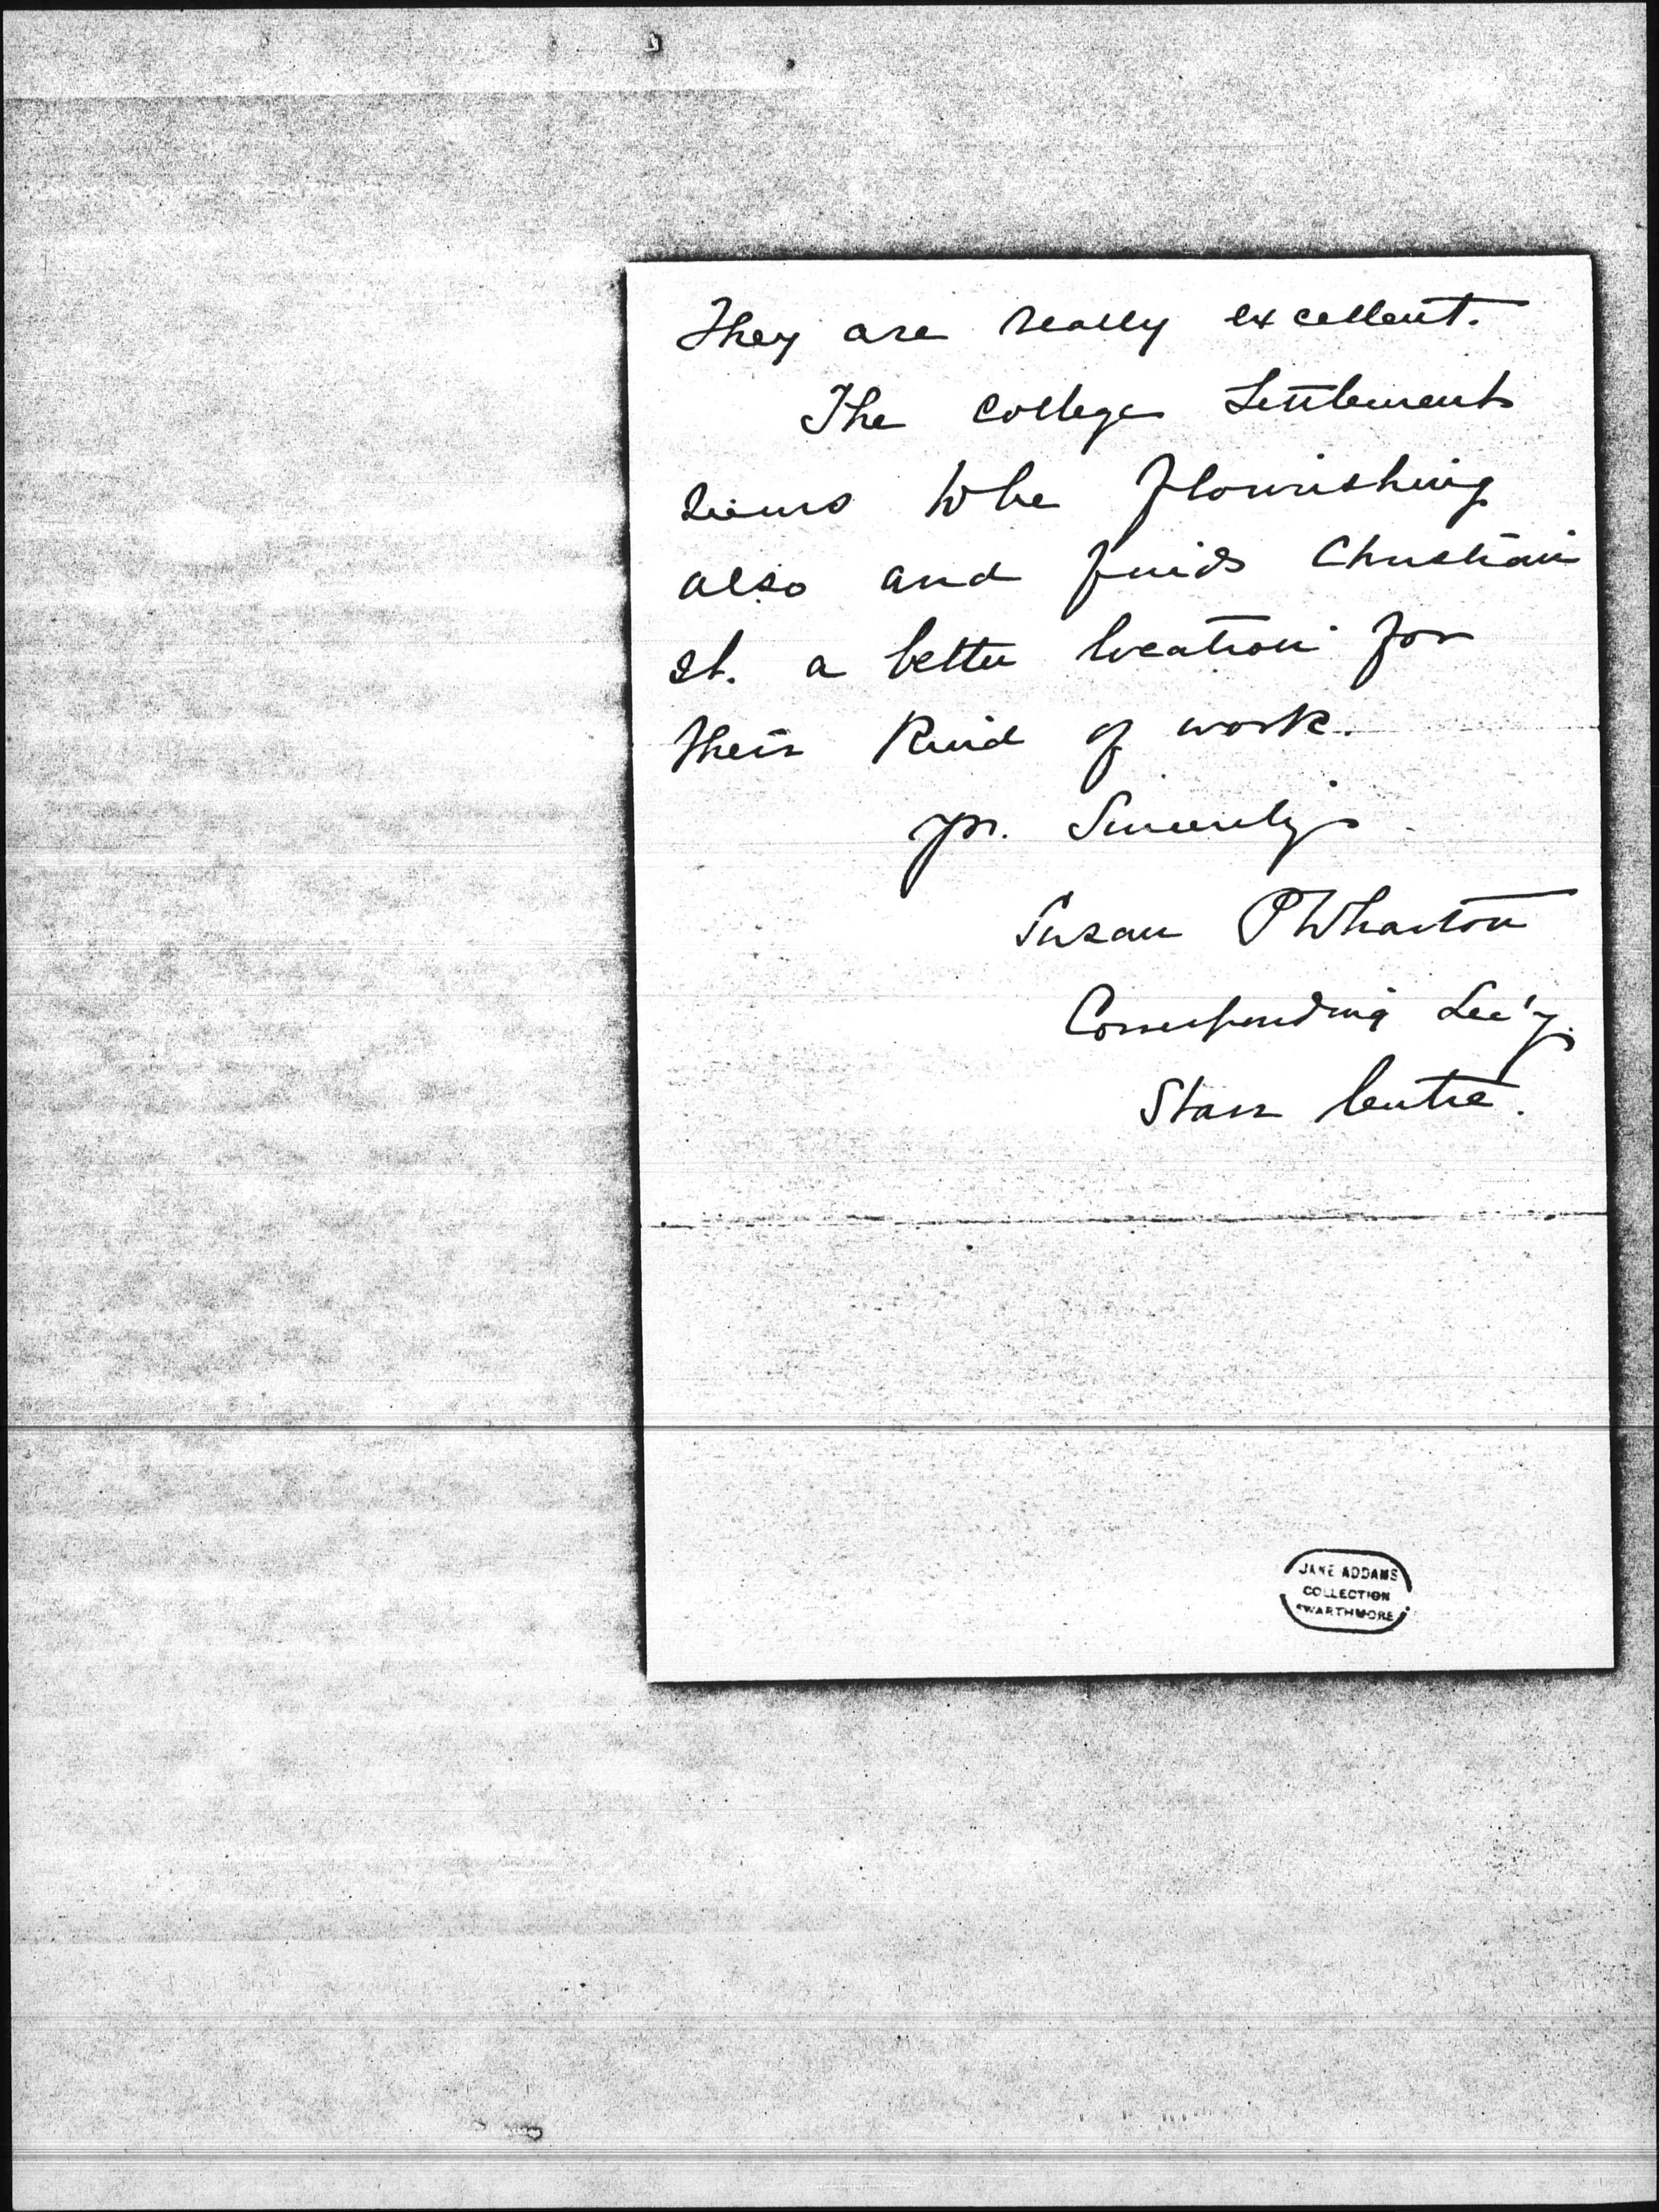 They are really excellent.
The College Settlement
seems to be flourishing
also and finds Christian
st. a better location for
their kind of work.
yrs. Sincerely
Susan P Wharton
Corresponding Sec'y.
Starr Centre.
JANE ADDAMS
COLLECTION
SWARTHMORE